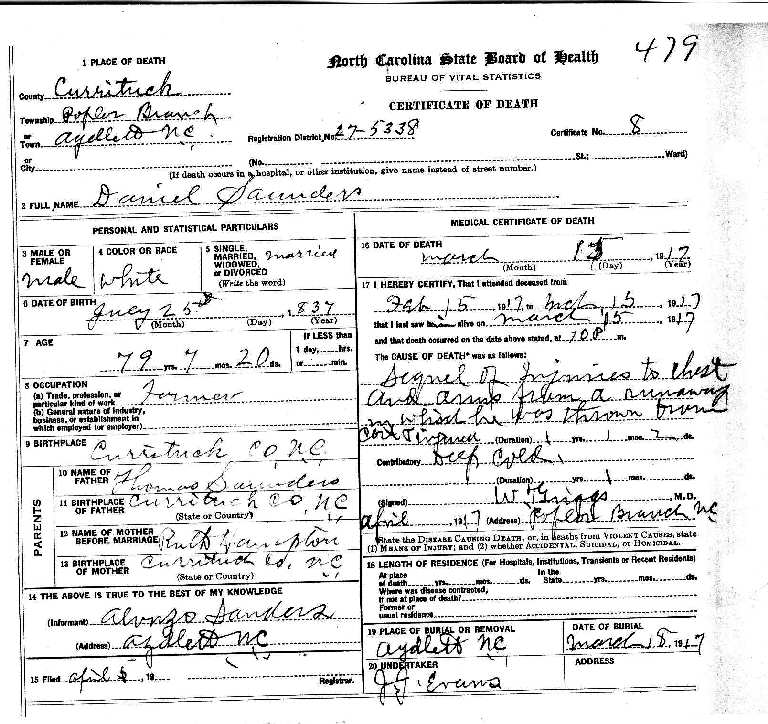 479
North Carolina State Board of Health
BUREAU OF VITAL STATISTICS
CERTIFICATE OF DEATH
1 PLACE OF DEATH
County Currituck
Township Poplar Branch
or
Town Aydlett NC.
Registration District No. 27-5338 Certificate No. 8
or
City (No. St.; Ward)
(If death occurs in a hospital, or other institution, give name instead of street number.)
2 FULL NAME Daniel Saunders
PERSONAL AND STATISTICAL PARTICULARS
3 MALE OR FEMALE male
4 COLOR OR RACE white
5 SINGLE, MARRIED, WIDOWED, or DIVORCED married
(Write the word)
6 DATE OF BIRTH July 25th, 1837
(Month) (Day) (Year)
7 AGE 79 yrs. 7 mos. 20 ds.
IF LESS than 1 day, hrs. or min.
8 OCCUPATION
(a) Trade, profession, or particular kind of work Farmer
(b) General nature of industry, business, or establishment in which employed (or employer)
9 BIRTHPLACE Currituck Co, N.C.
PARENTS
10 NAME OF FATHER Thomas Saunders
11 BIRTHPLACE OF FATHER Currituck Co, NC
(State or Country)
12 NAME OF MOTHER BEFORE MARRIAGE Ruth
13 BIRTHPLACE OF MOTHER Currituck Co, NC
(State or Country)
14 THE ABOVE IS TRUE TO THE BEST OF MY KNOWLEDGE
(Informant) Alonzo Sanders
(Address) Aydlett NC
15 Filed April 5, 19 Registrar.
MEDICAL CERTIFICATE OF DEATH
16 DATE OF DEATH March 15 1917
(Month) (Day) (Year)
17 I HEREBY CERTIFY, That I attended deceased from
Feb 15 1917 to Mch 15 1917
that I last saw h alive on March 15, 1917
and that death occurred on the date above stated, at m.
The CAUSE OF DEATH* was as follows:
Sequel of Injuries to chest
and arms from a runaway
in which he was thrown
Injured (Duration) yrs. 1 mos. ds.
Contributory Deep Cold
(Duration) yrs. 1 mos. ds.
(Signed) W Griggs M.D.
April 1917 (Address) Poplar Branch NC
*State the DISEASE CAUSING DEATH, or, in deaths from VIOLENT CAUSES, state
(1) MEANS OF INJURY; and (2) whether ACCIDENTAL, SUICIDAL, or HOMICIDAL.
18 LENGTH OF RESIDENCE (For Hospitals, Institutions, Transients or Recent Residents)
At place of death yrs. mos. ds. In the State yrs. mos. ds.
Where was disease contracted,
if not at place of death?
Former or
usual residence
19 PLACE OF BURIAL OR REMOVAL Aydlett NC
DATE OF BURIAL March 1917
20 UNDERTAKER J.J. Evans
ADDRESS